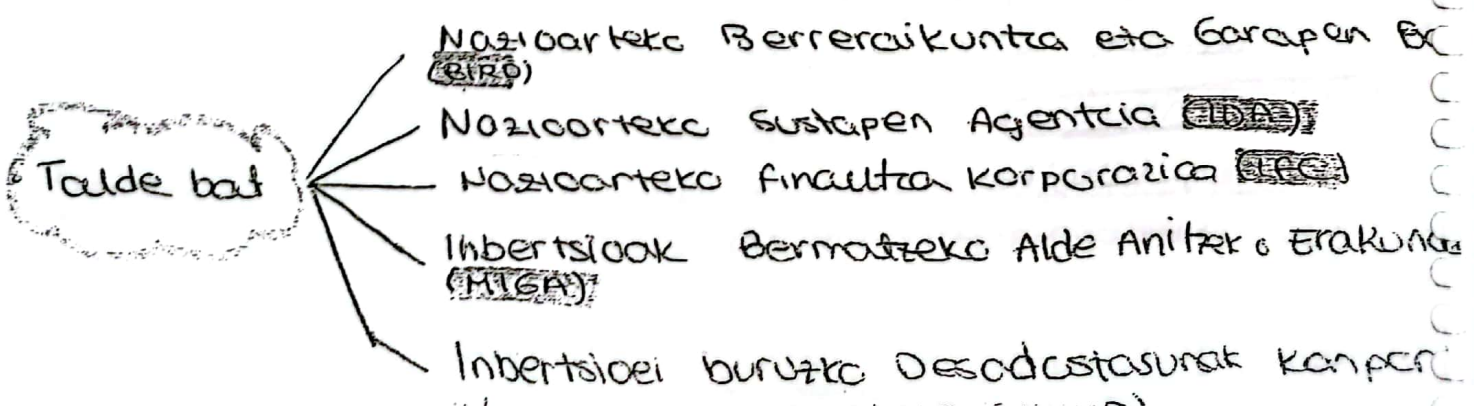 Nazioarteko Berreraikuntza eta Garapen
(BIRD)
Nazioarteko Sustapen Agentzia (IDA)
Talde bat
Nazioarteko finantza korporazioa (IFC)
Inbertsioak Bermatzeko Alde Anitzeko
(MIGA)
Inbertsioei buruzko Desadostasunak